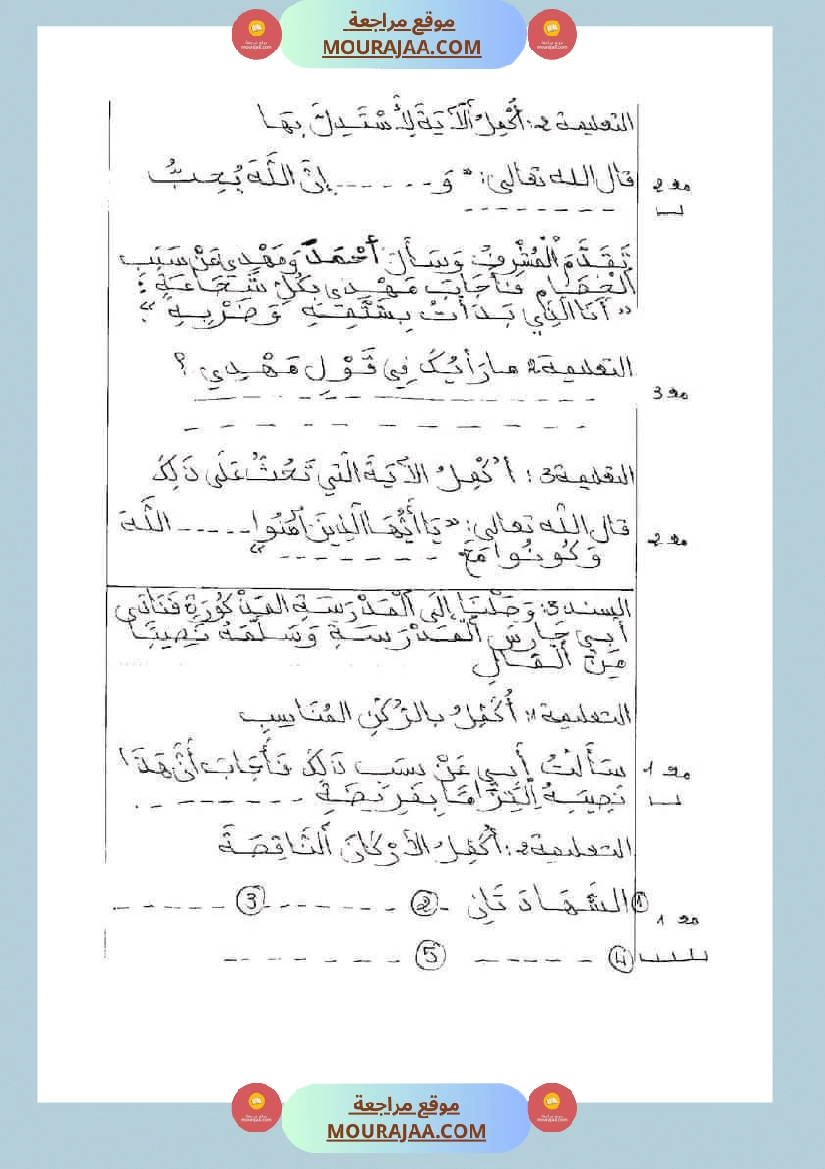 موقع مراجعة
MOURAJAA.COM
التعليمة 2: أُكْمِلُ الْآيَةَ لِأَسْتَدِلَّ بِهَا
قال الله تعالى: "وَ ------ إِنَّ اللَّهَ يُحِبُّ
--------
مع2
تَقَدَّمَ الْمُشْرِفُ وَسَأَلَ أَحْمَدَ وَمَهْدِي عَنْ سَبَبِ
الْخِصَامِ فَأَجَابَ مَهْدِي بِكُلِّ شَجَاعَةٍ:
"أَنَا الَّذِي بَدَأْتُ بِشَتْمِهِ وَضَرْبِهِ"
التعليمة 2 مَا رَأْيُكَ فِي قَوْلِ مَهْدِي؟
مع3
التعليمة 3: أُكْمِلُ الْآيَةَ الَّتِي تَحُثُّ عَلَى ذَلِكَ
قال اللَّه تعالى: "يَا أَيُّهَا الَّذِينَ آمَنُوا ----- اللَّهَ
وَكُونُوا مَعَ --------"
مع2
السند 3: وَصَلْنَا إِلَى الْمَدْرَسَةِ المَذْكُورَةِ فَنَادَى
أَبِي حَارِسَ الْمَدْرَسَةِ وَسَلَّمَهُ نَصِيبًا
مِنَ الْمَالِ
التعليمة 1: أُكْمِلُ بِالرُّكْنِ المُنَاسِبِ
سَأَلْتُ أَبِي عَنْ سَبَبِ ذَلِكَ فَأَجَابَ أَنَّ هَذَا
نَصِيبُهُ الْتِزَامًا بِفَرِيضَةِ --------
مع1
التعليمة 2: أُكْمِلُ الأَرْكَانَ النَّاقِصَةَ
① الشَّهَادَتَانِ ② ------- ③ ------
مع1
④ ------ ⑤ -------
موقع مراجعة
MOURAJAA.COM